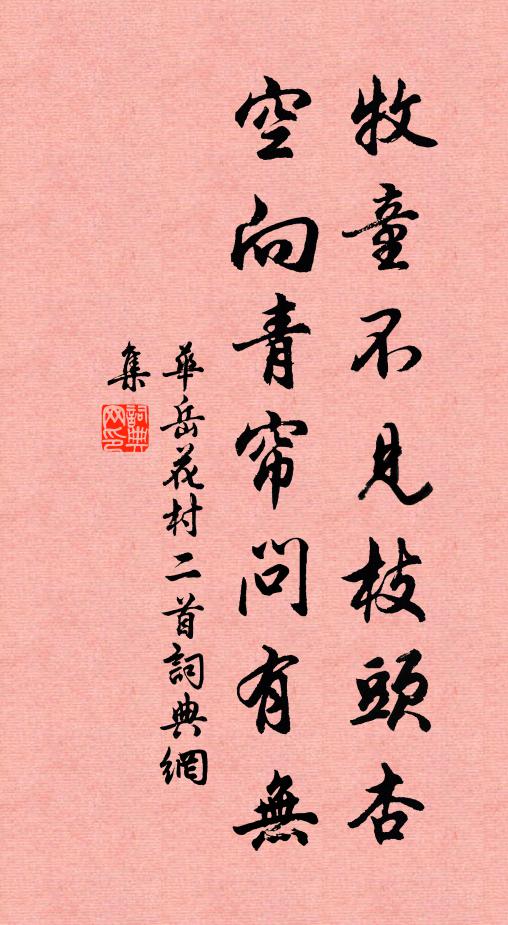 牧童不見枝頭杏
空向青帘問有無
華岳花村二首詞典網
集
詞典網印